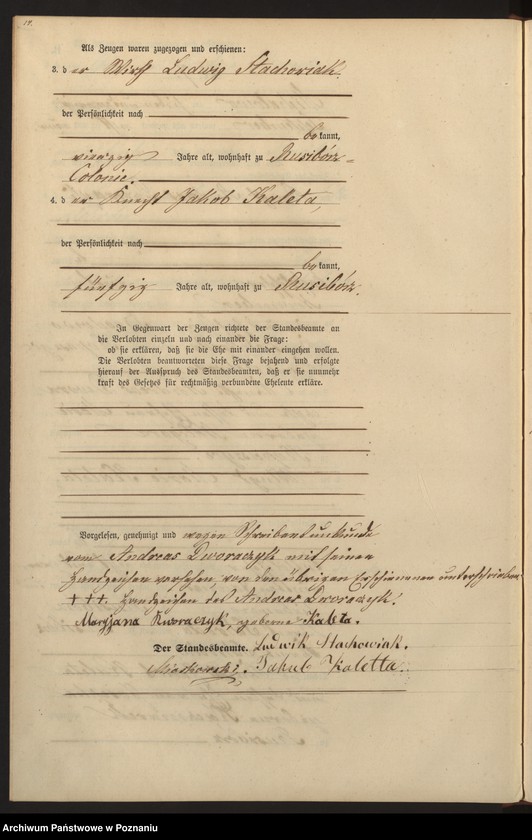 14.
Als Zeugen waren zugezogen und erschienen:
3. d er Wirth Ludwig Stachowiak.
der Persönlichkeit nach
be kannt,
vierzig Jahre alt, wohnhaft zu Rusibórz-
Colonie.
4. d er Knecht Jakob Kaleta,
der Persönlichkeit nach
be kannt,
fünfzig Jahre alt, wohnhaft zu Rusibórz.
In Gegenwart der Zeugen richtete der Standesbeamte an
die Verlobten einzeln und nach einander die Frage:
ob sie erklären, daß sie die Ehe mit einander eingehen wollen.
Die Verlobten beantworteten diese Frage bejahend und erfolgte
hierauf der Ausspruch des Standesbeamten, daß er sie nunmehr
kraft des Gesetzes für rechtmäßig verbundene Eheleute erkläre.
Vorgelesen, genehmigt und wegen Schreibensunkunde
vom Andreas Dworaczyk mit seinen
Handzeichen versehen, von den übrigen Erschienenen unterschrieben
+++. Handzeichen des Andreas Dworaczyk.
Maryjana Dworaczyk, geborne Kaleta.
Ludwik Stachowiak.
Der Standesbeamte.
Jakub Kaletta.
Archiwum Państwowe w Poznaniu